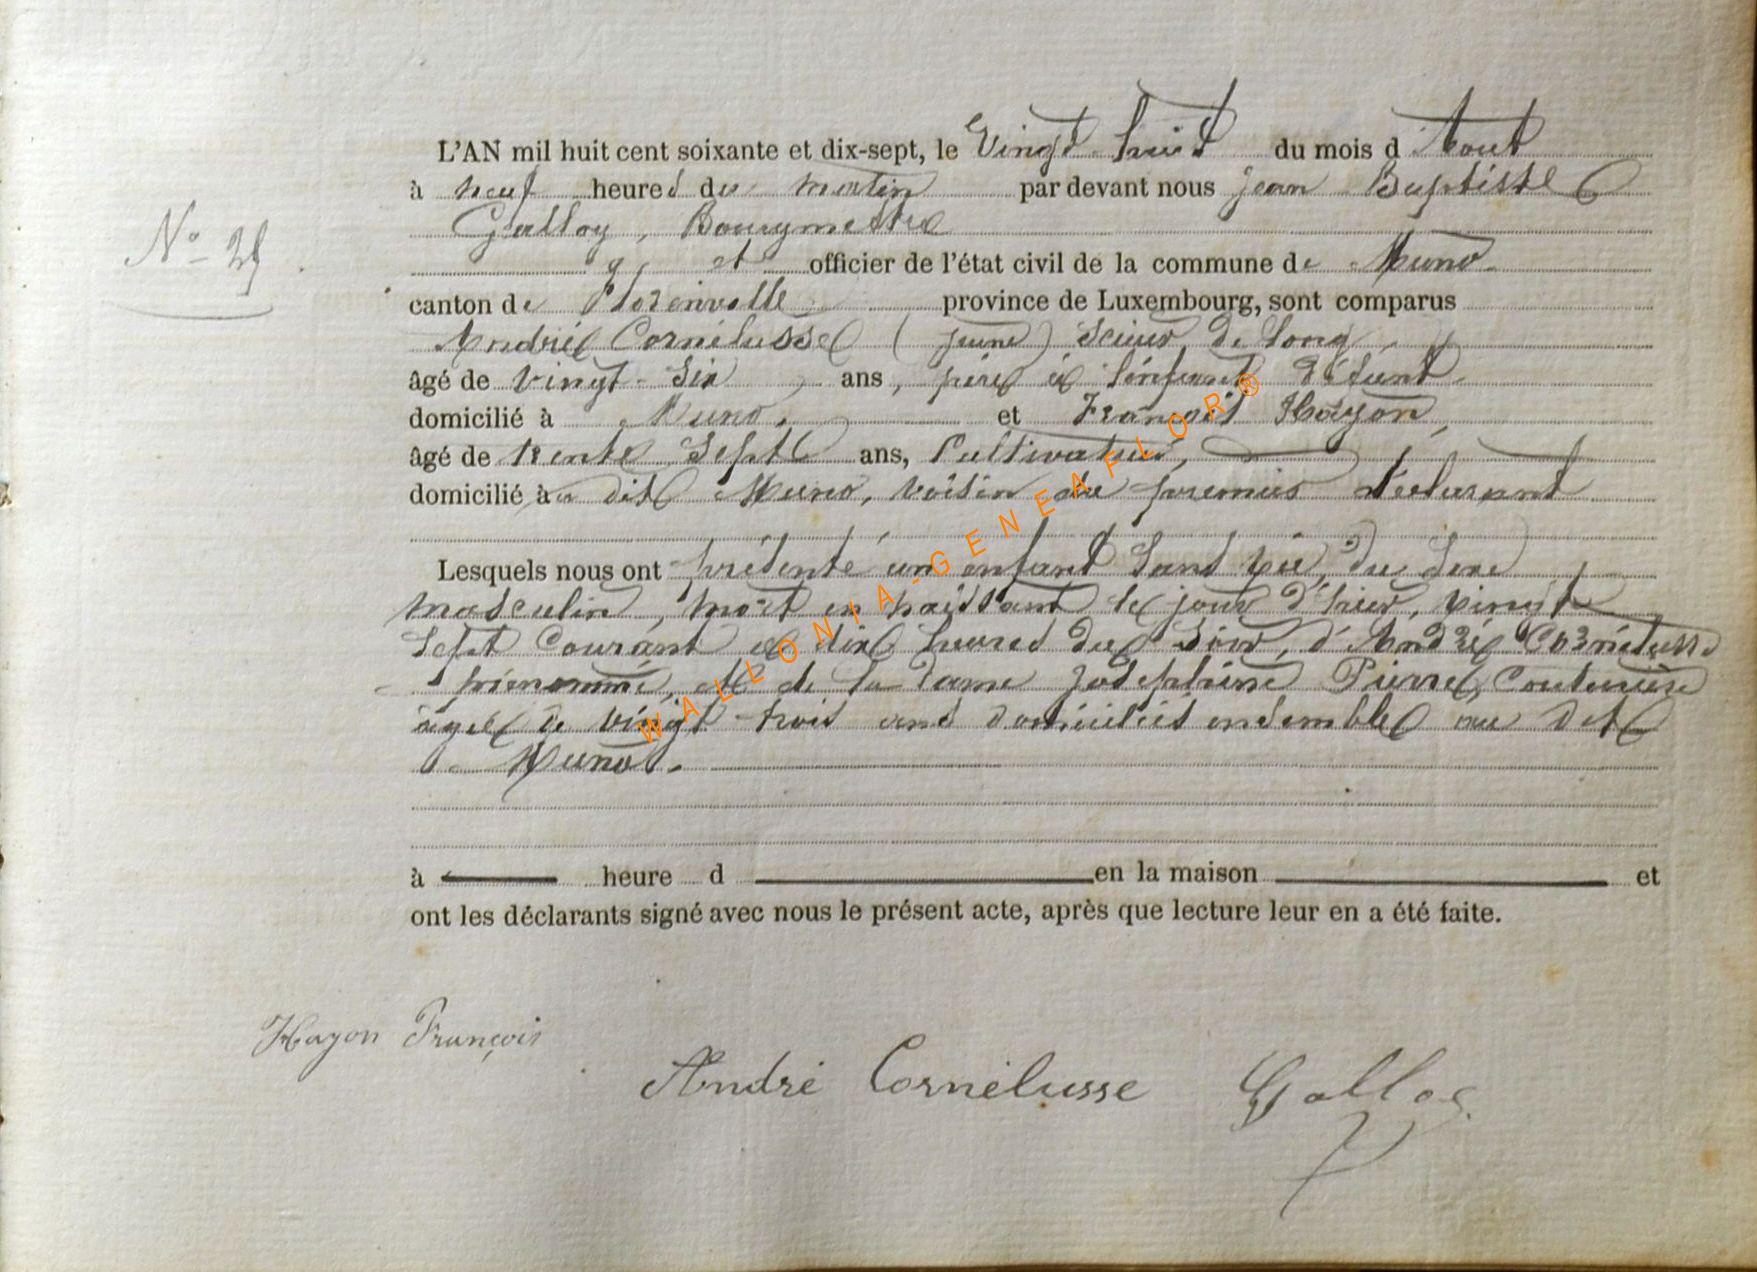 L'AN mil huit cent soixante et dix-sept, le Vingt huit du mois d'Aout
à neuf heures du matin par devant nous Jean Baptiste
Galloy, Bourgmestre
et officier de l'état civil de la commune de Muno
canton de Florenville province de Luxembourg, sont comparus
André Cornélusse (jeune) Scieur de long,
âgé de vingt-six ans, père à l'enfant défunt
domicilié à Muno, et François Hayon,
âgé de trente sept ans, Cultivateur,
domicilié au dit Muno, voisin du premier déclarant
Lesquels nous ont présenté un enfant sans vie, du sexe
masculin, mort en naissant le jour d'hier, vingt
sept courant à dix heures du soir, d'André Cornélusse
prénommé, et de la dame Joséphine Pierre, Couturière
âgée de vingt-trois ans domiciliés ensemble au dit
Muno.
à heure d en la maison et
ont les déclarants signé avec nous le présent acte, après que lecture leur en a été faite.
Hayon François
André Cornélusse Galloy
N°
WALLONIA-GENEAFLOR®